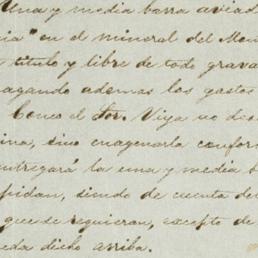 Una y media barra aviad
ia" en el mineral del Mon
titulo y libre de todo grava
agando ademas los gastos
Como el Sor. Viya no des
ina, sino enagenarla confor
ntregará la una y media b
pidan, siendo de cuenta de
que se requieran, excepto de
eda dicho arriba.